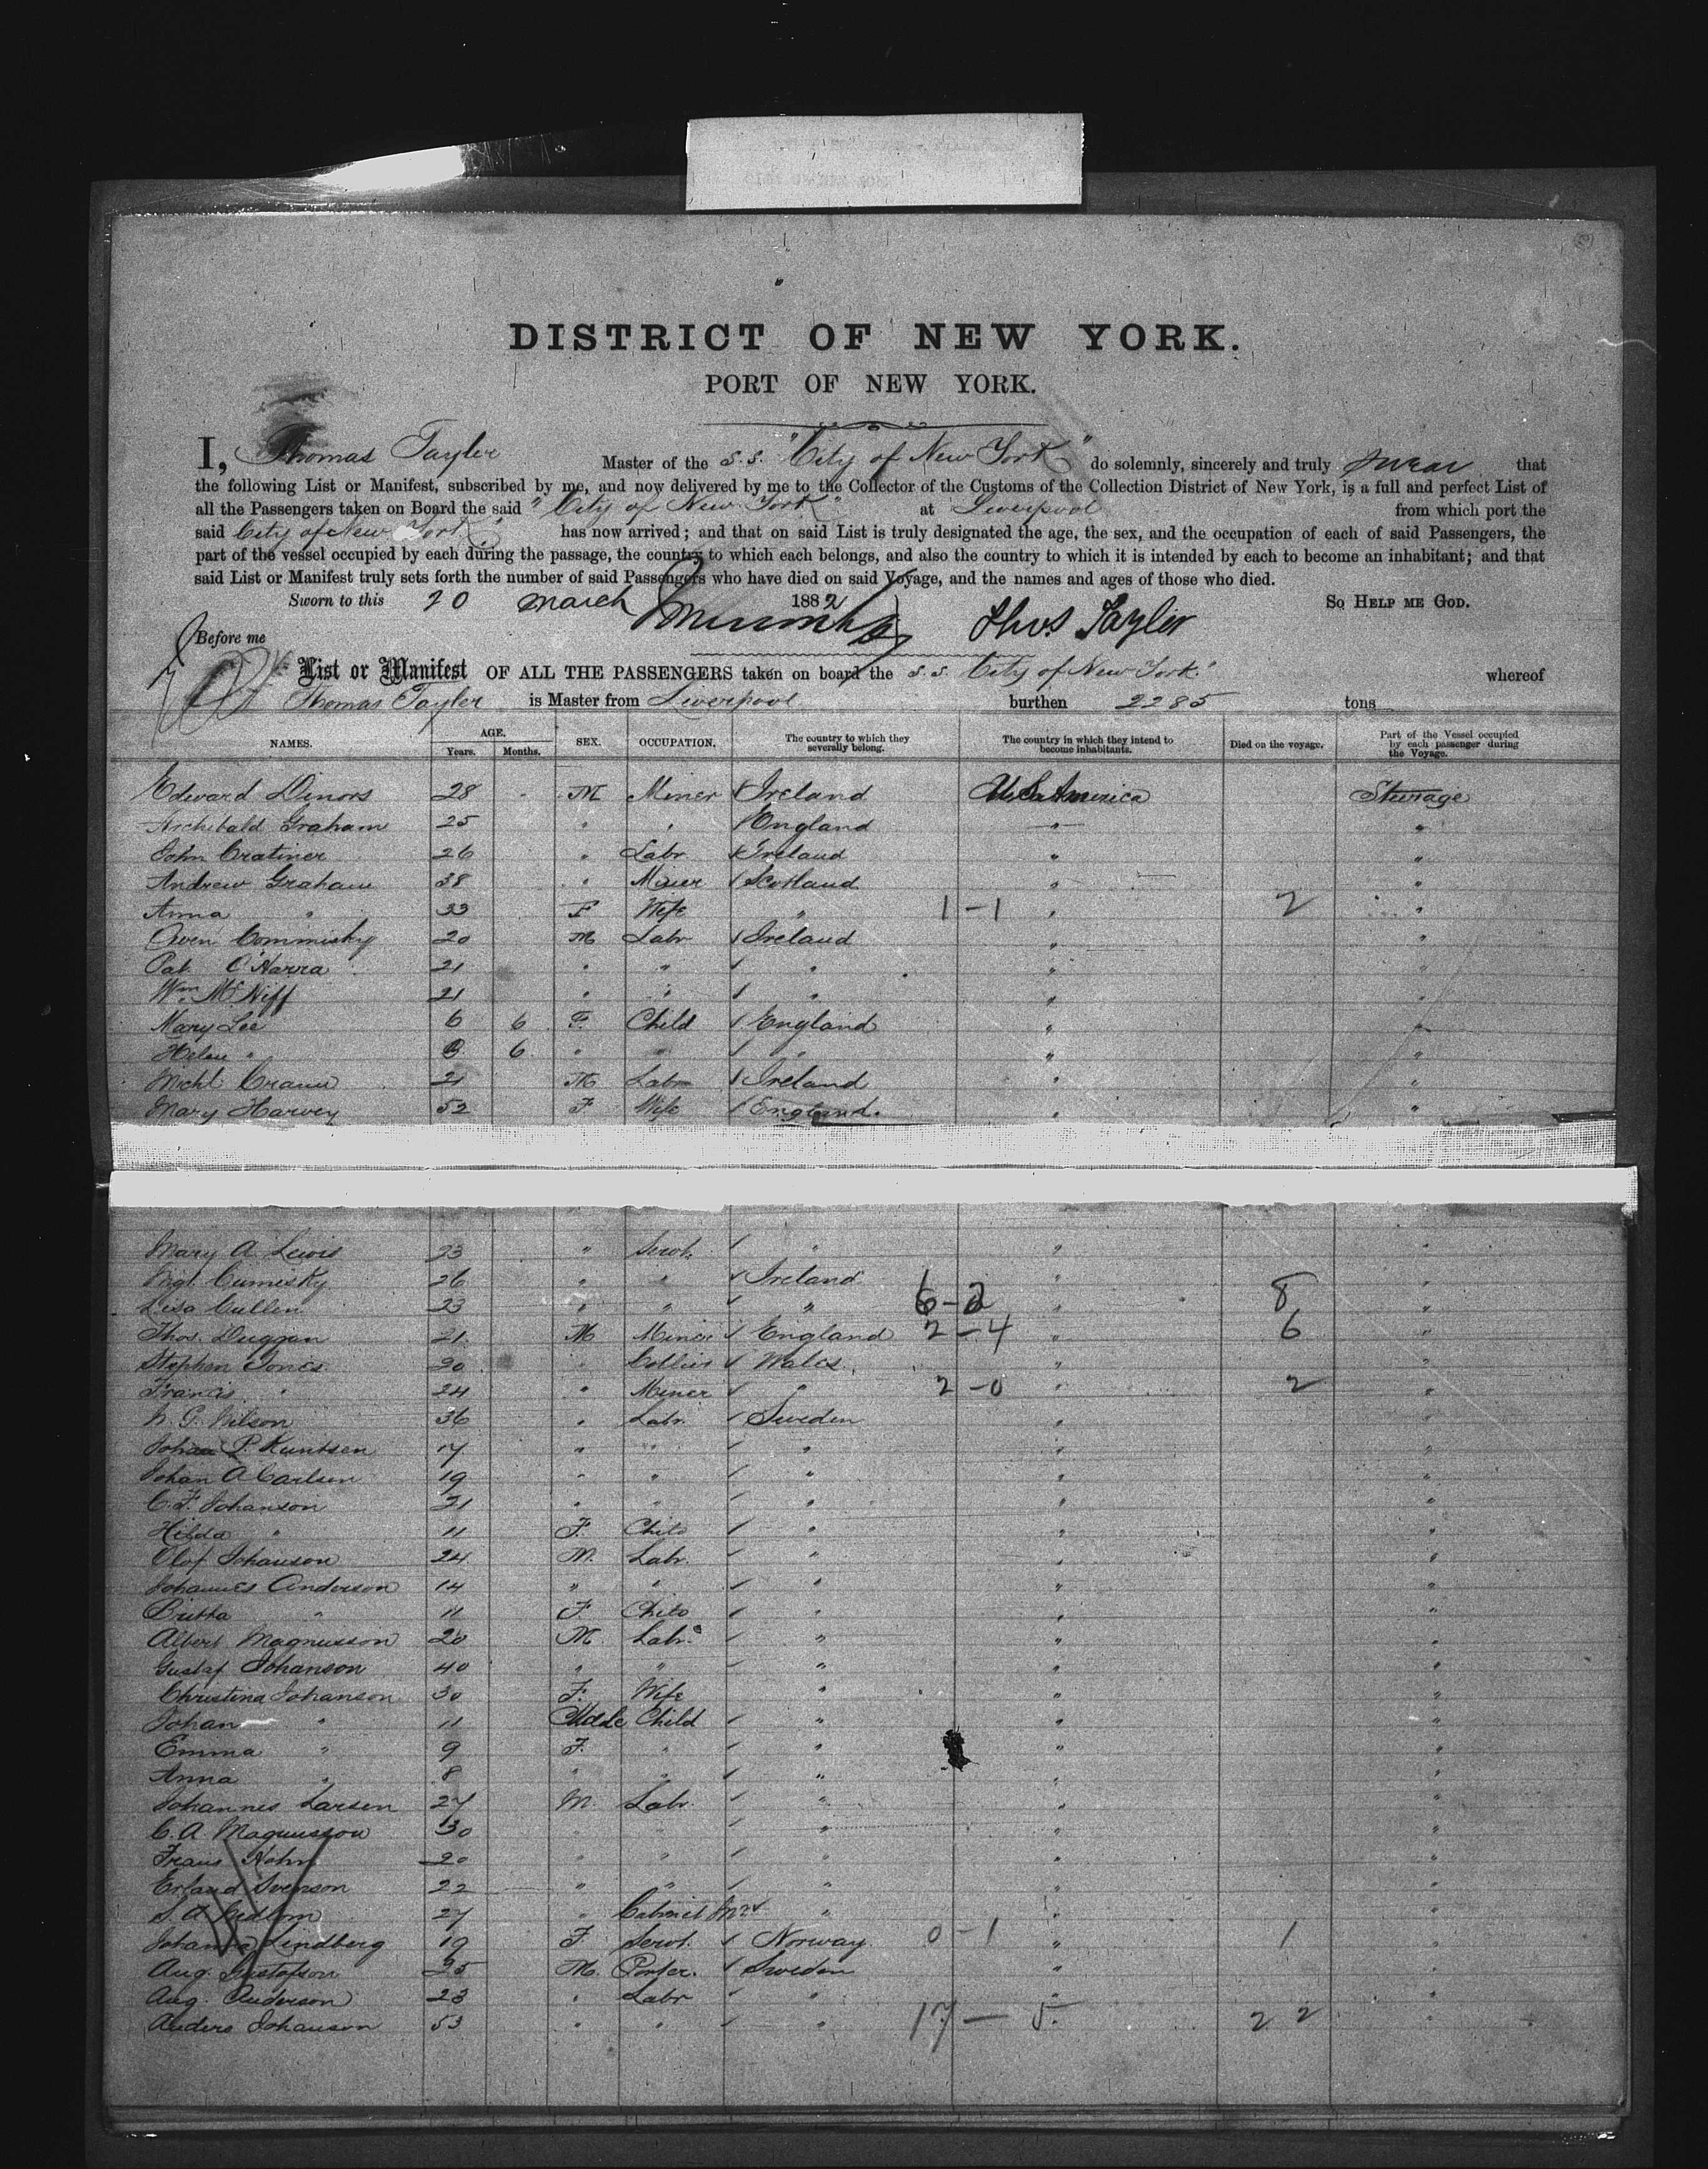 DISTRICT OF NEW YORK.
PORT OF NEW YORK.
I, Thomas Tayler Master of the S.S. "City of New York" do solemnly, sincerely and truly swear that
the following List or Manifest, subscribed by me, and now delivered by me to the Collector of the Customs of the Collection District of New York, is a full and perfect List of
all the Passengers taken on Board the said "City of New York" at Liverpool from which port the
said City of New York has now arrived; and that on said List is truly designated the age, the sex, and the occupation of each of said Passengers, the
part of the vessel occupied by each during the passage, the country to which each belongs, and also the country to which it is intended by each to become an inhabitant; and that
said List or Manifest truly sets forth the number of said Passengers who have died on said Voyage, and the names and ages of those who died.
Sworn to this 20 March 1882 So Help me God.
Before me Thos Tayler
List or Manifest OF ALL THE PASSENGERS taken on board the S.S. City of New York" whereof
Thomas Tayler is Master from Liverpool burthen 2285 tons
NAMES. AGE. Years. Months. SEX. OCCUPATION. The country to which they severally belong. The country in which they intend to become inhabitants. Died on the voyage. Part of the Vessel occupied by each passenger during the Voyage.
Edward Dinors 28 M Miner Ireland U.S. America Steerage
Archibald Graham 25 " " England " "
John 26 " Labr Ireland " "
Andrew Graham 38 " Miner Scotland " "
Anna " 33 F Wife " 1-1 " 2 "
Owen Commisky 20 M Labr Ireland " "
Pat O'Harra 21 " " " " "
Wm McNiff 21 " " " " "
Mary Lee 6 6 F. Child England " "
Helen " 3 6 " " " " "
Michl 21 M Labr Ireland " "
Mary Harvey 52 F Wife England. " "
Mary A Lewis 23 " Servt. " " "
Mgt. Cumisky 26 " " Ireland " "
Lisa Cullen 23 " " " 6-2 " 8 "
Thos. Duggan 21 M Miner England 2-4 " 6 "
Stephen Jones 20 " Collier Wales " "
Francis " 24 " Miner " 2-0 " 2 "
N. G. Nilson 36 " Labr. Sweden " "
Johan P. Kuntsen 17 " " " " "
Johan A Carlsen 19 " " " " "
C. F. Johanson 21 " " " " "
Hilda " 11 F. Child " " "
Olof Johanson 24 M. Labr. " " "
Johannes Anderson 14 " " " " "
Britta " 11 F. Child " " "
Albert Magnusson 20 M. Labr. " " "
Gustaf Johanson 40 " " " " "
Christina Johanson 30 F. Wife " " "
Johan " 11 Male Child " " "
Emma " 9 F. " " " "
Anna " 8 " " " " "
Johannes Larsen 27 M. Labr. " " "
C. A. Magnusson 30 " " " " "
Frans Hohn 20 " " " " "
Erland Svenson 22 " " " " "
S. A. 27 " Cabinet Mr " " "
Johanna Lindberg 19 F. Servt. Norway 0-1 " 1 "
Aug. Gustafson 25 M. Porter. Sweden " "
Aug. Anderson 23 " Labr " " "
Anders Johanson 53 " " " 17-5 22 "